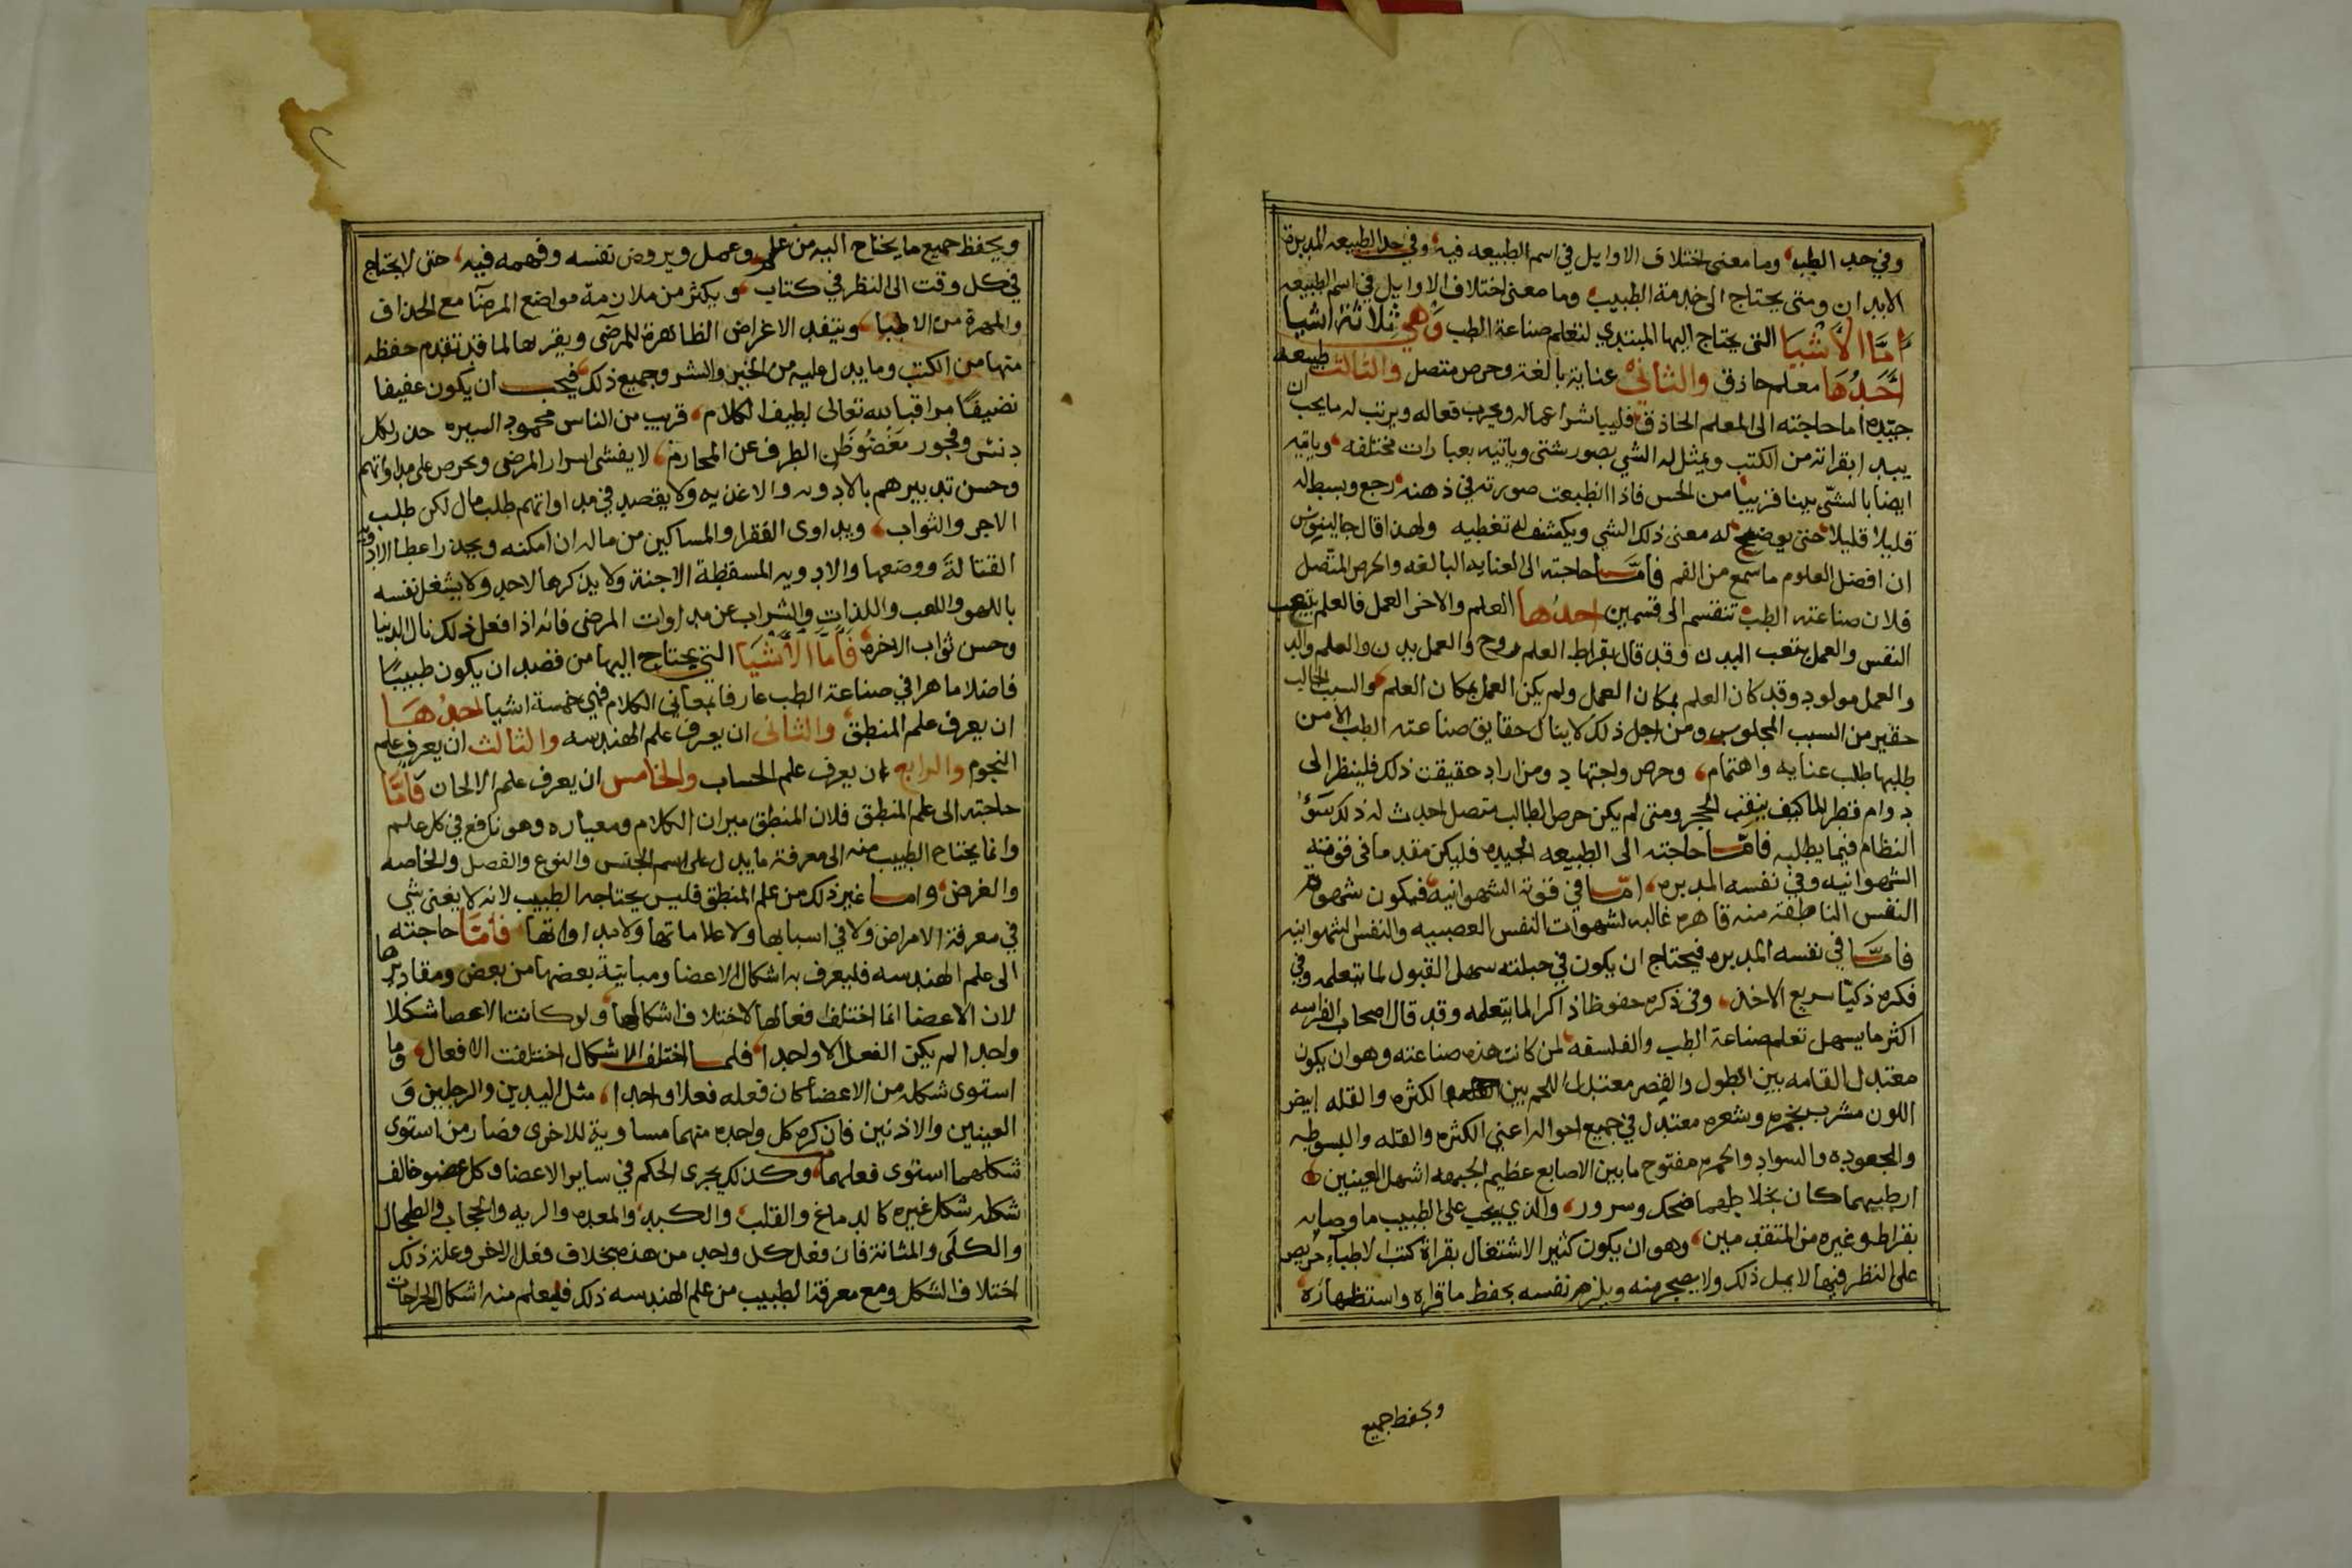 وفي حد الطب وما معنى اختلاف الاوايل في اسم الطبيعه فيه وفي حد الطبيعه المدبرة
الابدان ومتى يحتاج الى خدمة الطبيب وما معنى اختلاف الاوايل في اسم الطبيعه
اَمَّا الْاَشْيَا التى يحتاج اليها المبتدي لتعلم صناعة الطب وَهي ثلاثة اشيا
اَحَدُهَا معلم حاذق والثاني عناية بالغة وحرص متصل والثالث طبيعه
جيّده اما حاجته الى المعلم الحاذق فليباشر اعماله ويجرب فعاله ويرتب له ما يجب ان
يبدا بقراته من الكتب ويمثل له الشي بصور شتى وياتيه بعبارات مختلفه وياتيه
ايضا بالشي بينا قريبا من الحس فاذا انطبعت صورته في ذهنه رجع وبسط له
قليلا قليلا حتى يوضح له معنى ذلك الشي ويكشف له تغطيه ولهذا قال جالينوس
ان افضل العلوم ما سمع من الفم فأمّا حاجته الى العنايه البالغه والحرص المتّصل
فلان صناعته الطب تنقسم الى قسمين احدُها العلم والاخر العمل فالعلم يتعب
النفس والعمل يتعب البدن وقد قال بقراط العلم روح والعمل بدن والعلم والد
والعمل مولود وقد كان العلم بمكان العمل ولم يكن العمل بمكان العلم والسبب الجالب
حقير من السبب المجلوس ومن اجل ذلك لا ينال حقايق صناعته الطب الا من
طلبها طلب عنايه واهتمام وحرص واجتهاد ومن اراد حقيقت ذلك فلينظر الى
دوام قطر الماكيف يثقب الحجر ومتى لم يكن حرص الطالب متصل احدث له ذلك سَوْ
النظام فيما يطلبه فامّا حاجته الى الطبيعه الجيده فليكن مقدما في قوته
الشهوانيه وفي نفسه المدبره امّا في قوته الشهوانيه فيكون شهوة
النفس الناطقة منه قاهره غالبه لشهوات النفس العصبيه والنفس الشهوانيه
فامّا في نفسه المدبره فيحتاج ان يكون في جبلته سهل القبول لما يتعلمه وفي
فكره ذكيّا سريع الاخذ وفي ذكره حفوظا ذاكرا لما يتعلمه وقد قال اصحاب الفراسه
اكثر ما يسهل تعلم صناعة الطب والفلسفه لمن كانت هذه صناعته وهو ان يكون
معتدل القامه بين الطول والقصر معتدل اللحم بين الكثره والقله ابيض
اللون مشرب بحمره وشعره معتدل في جميع احواله اعني الكثره والقله والبسوطه
والجعوده والسواد والحمره مفتوح ما بين الاصابع عظيم الجبهه اشهل العينين
ارطبهما كان بخلاطهما ضحك وسرور والذي يجب على الطبيب ما وصا به
بقراط وغيره من المتقدمين وهو ان يكون كثير الاشتغال بقراة كتب الاطباء حريص
على النظر فيها لا يمل ذلك ولا يضجر منه ويلزم نفسه بحفظ ما قراه واستظهاره
ويحفظ جميع
ويحفظ جميع ما يحتاج اليه من علم وعمل ويروض نفسه وفهمه فيه حتى لا يحتاج
في كل وقت الى النظر في كتاب ويكثر من ملازمة مواضع المرضا مع الحذاق
والمهرة من الاطبا ويتفقد الاغراض الظاهرة للمرضى ويقربها لما قد تقدم حفظه
منها من الكتب وما يدل عليه من الخير والشر وجميع ذلك فيجب ان يكون عفيفا
نضيفًا مراقبا لله تعالى لطيف الكلام قريب من الناس محمود السيره حذر لكل
دنس وفجور مَغْضُوْظَن الطرف عن المحارم لا يفشى اسرار المرضى وحرص على مداواتهم
وحسن تدبيرهم بالادويه والاغذيه ولا يقصد في مداواتهم طلب مال لكن طلب
الاجر والثواب ويداوى الفقرا والمساكين من ماله ان امكنه ويحذر اعطا الادويه
القتالة ووضعها والادويه المسقطة الاجنة ولا يذكرها لاحد ولا يشغل نفسه
باللهو واللعب واللذات والشراب عن مداوات المرضى فانه اذا فعل ذلك نال الدنيا
وحسن ثواب الاخره فَأَمَّا الْاَشْيَا التي يحتاج اليها من قصد ان يكون طبيبًا
فاضلا ماهرا في صناعة الطب عارفا بمعاني الكلام فهي خمسة اشيا احدُهَا
ان يعرف علم المنطق والثانى ان يعرف علم الهندسه والثالث ان يعرف علم
النجوم والرابع ان يعرف علم الحساب والخامس ان يعرف علم الالحان فَأمَّا
حاجته الى علم المنطق فلان المنطق ميزان الكلام ومعياره وهو نافع في كل علم
وانما يحتاج الطبيب منه الى معرفة ما يدل على اسم الجنس والنوع والفصل والخاصه
والغرض وامّا غير ذلك من علم المنطق فليس يحتاجه الطبيب لانه لا يغنى شي
في معرفة الامراض ولا في اسبابها ولا علاماتها ولا مداواتها فَأمَّا حاجته
الى علم الهندسه فليعرف به اشكال الاعضا ومباينة بعضها من بعض ومقاديرها
لان الاعضا انما اختلف فعالها لاختلاف اشكالها ولو كانت الاعضا شكلا
واحدا لم يكن الفعل الا واحدا فلما اختلف الاشكال اختلفت الافعال وما
استوى شكله من الاعضا كان فعله فعلا واحدا مثل اليدين والرجلين وَ
العينين والاذنين فان كره كل واحده منهما مساوية للاخرى فصار من استوى
شكلهما استوى فعلهما وكذلك يجرى الحكم في ساير الاعضا وكل عضو خالف
شكله شكل غيره كالدماغ والقلب والكبد والمعده والريه والحجاب والطحال
والكلَى والمثانة فان فعل كل واحد من هذه بخلاف فعل الاخر وعلة ذلك
اختلاف الشكل ومع معرفة الطبيب من علم الهندسه ذلك فليعلم منه اشكال الجراحات